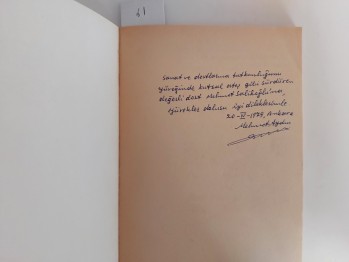 61
Sanat ve dostlarına tutkunluğunu
yüreğinde kutsal ateş gibi sürdüren
değerli dost Mehmet Salihoğlu'na,
yürekler dolusu iyi dileklerimle
20-VI-1979, Ankara
Mehmet Aydın